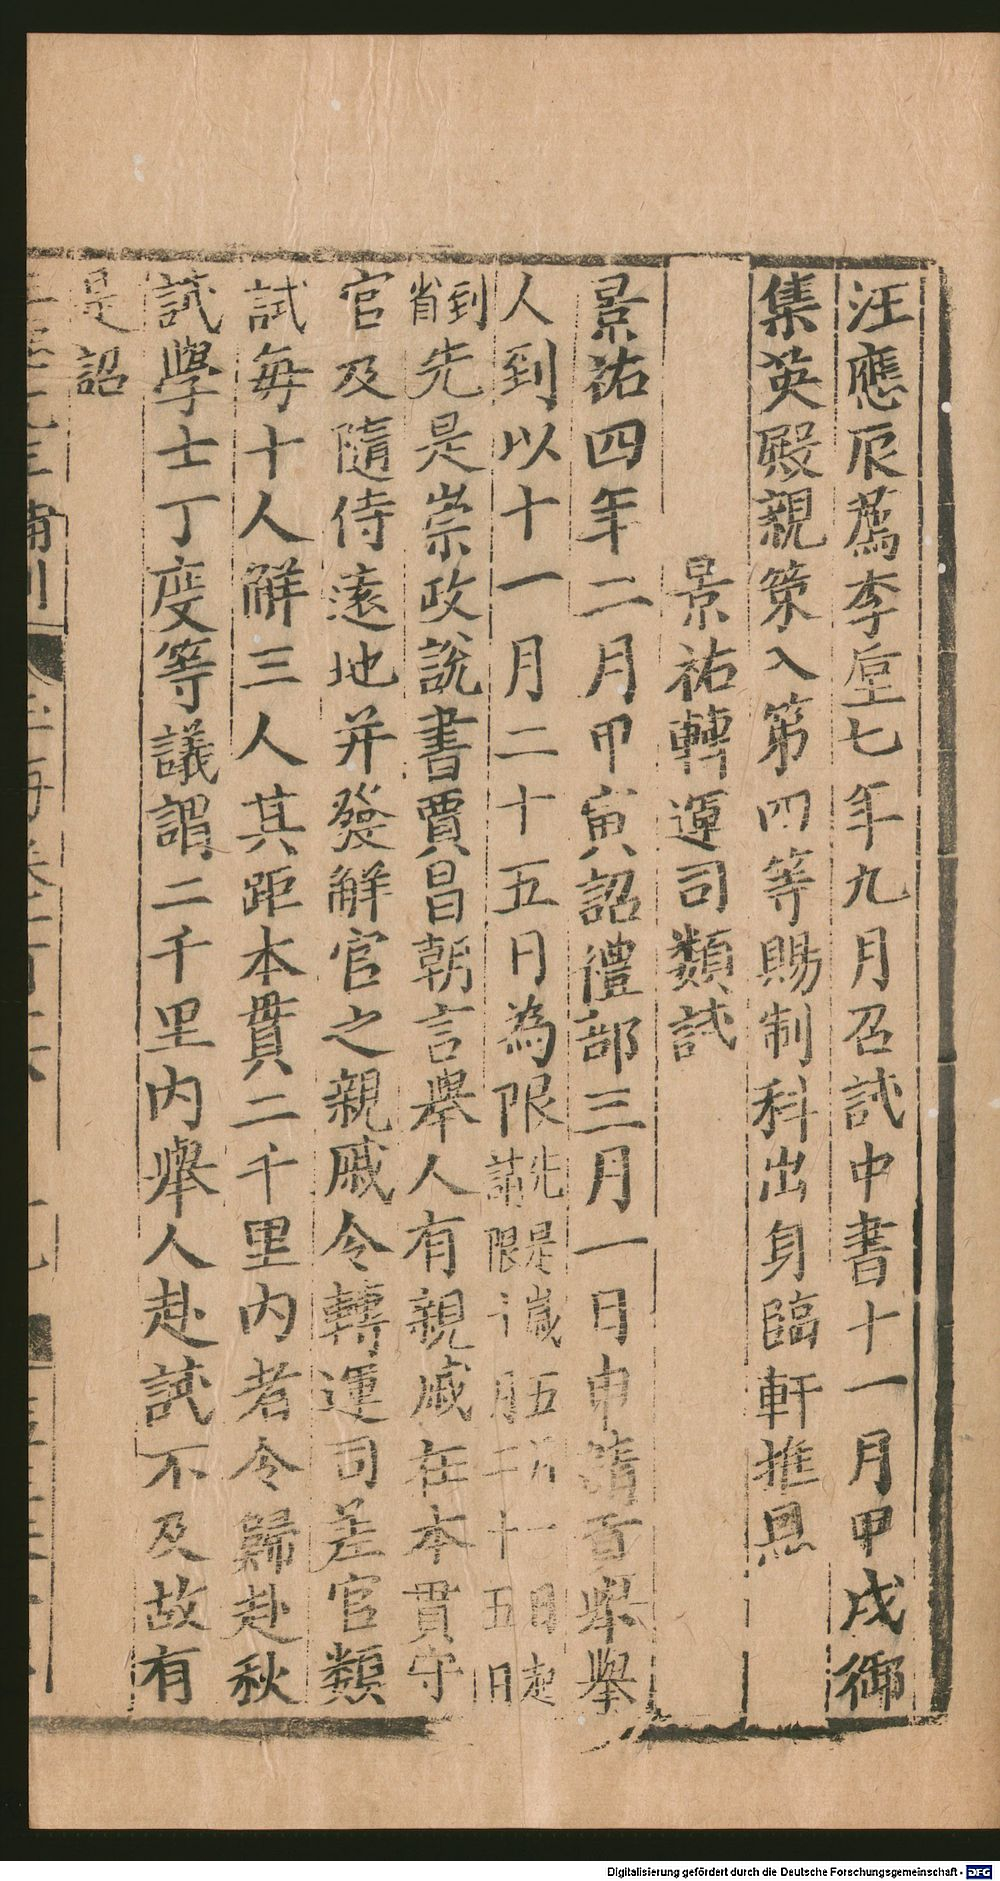 汪應辰薦李垕七年九月召試中書十一月甲戌御
集英殿親策入第四等賜制科出身臨軒推恩
景祐轉運司類試
景祐四年二月甲寅詔禮部三月一日申請貢舉舉
人到以十一月二十五日為限先是歲五月一日起請限十月二十五日
到省先是崇政說書賈昌朝言舉人有親戚在本貫守
官及隨侍遠地并發解官之親戚令轉運司差官類
試每十人解三人其距本貫二千里內者令歸赴秋
試學士丁度等議謂二千里內舉人赴試不及故有
是詔
Digitalisierung gefördert durch die Deutsche Forschungsgemeinschaft - DFG